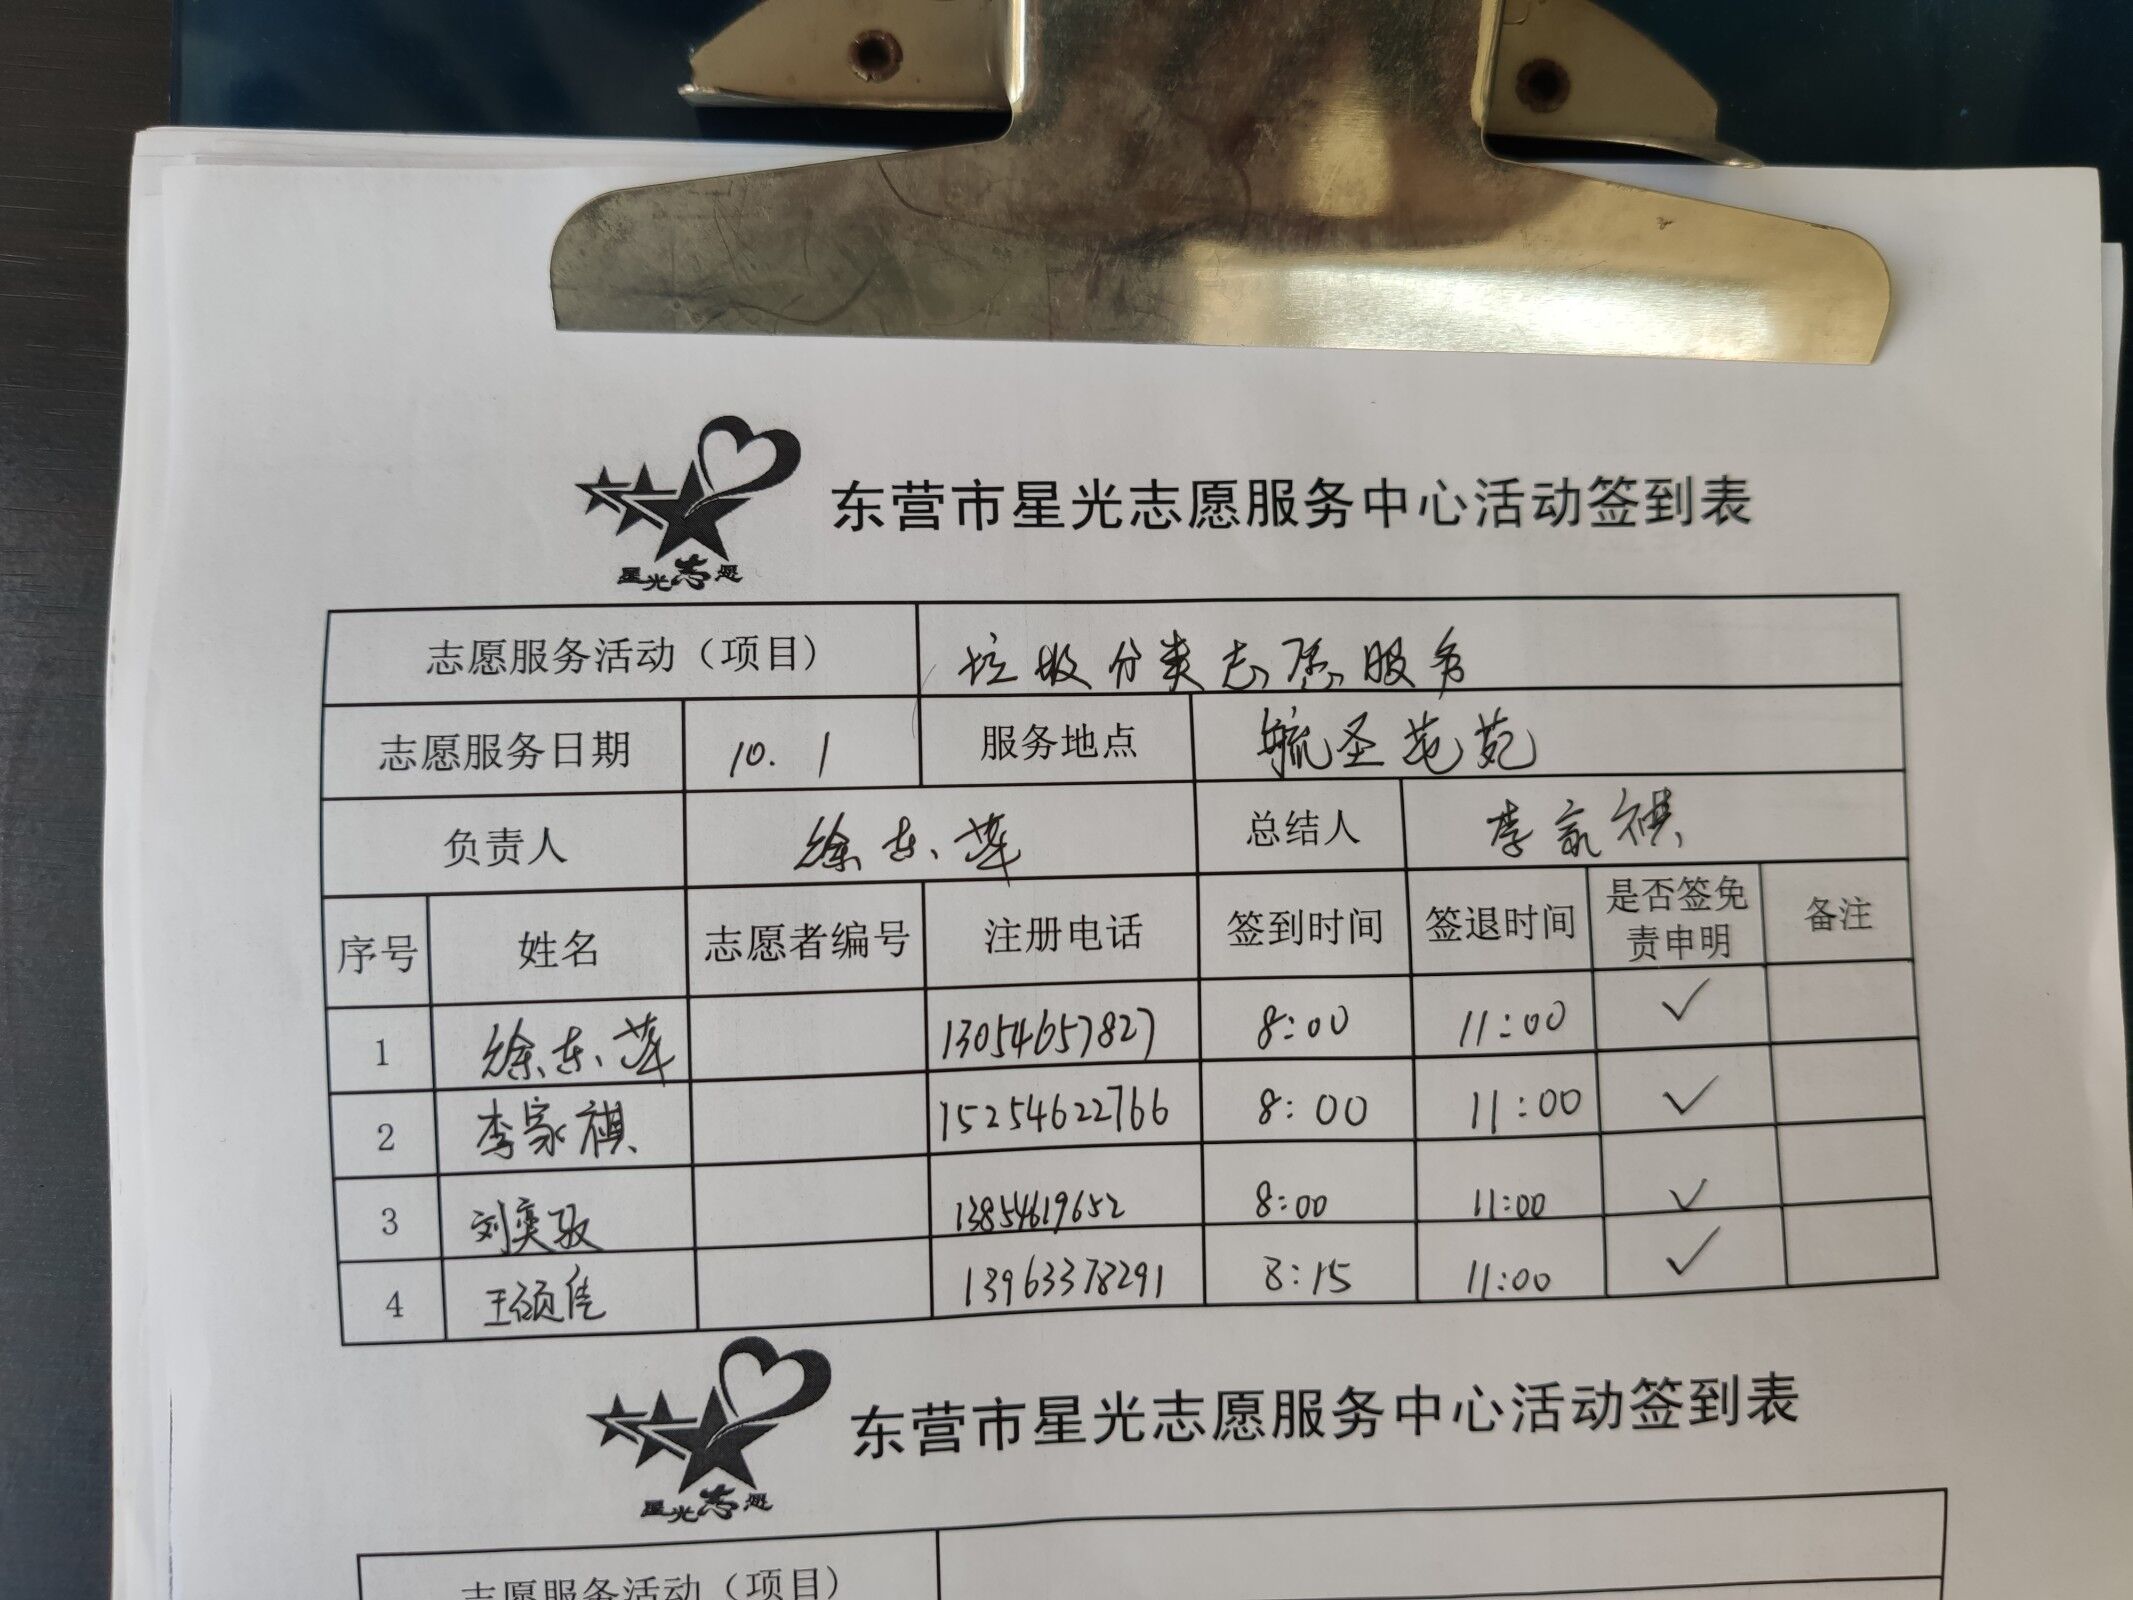 星光志愿
东营市星光志愿服务中心活动签到表
志愿服务活动（项目） 垃圾分类志愿服务
志愿服务日期 10.1 服务地点 毓圣苑
负责人 徐东萍 总结人 李家祺
序号 姓名 志愿者编号 注册电话 签到时间 签退时间 是否签免责申明 备注
1 徐东萍 13054657827 8:00 11:00 ✓
2 李家祺 15254622766 8:00 11:00 ✓
3 刘奕 13854619652 8:00 11:00 ✓
4 王硕 13963378291 8:15 11:00 ✓
星光志愿
东营市星光志愿服务中心活动签到表
志愿服务活动（项目）